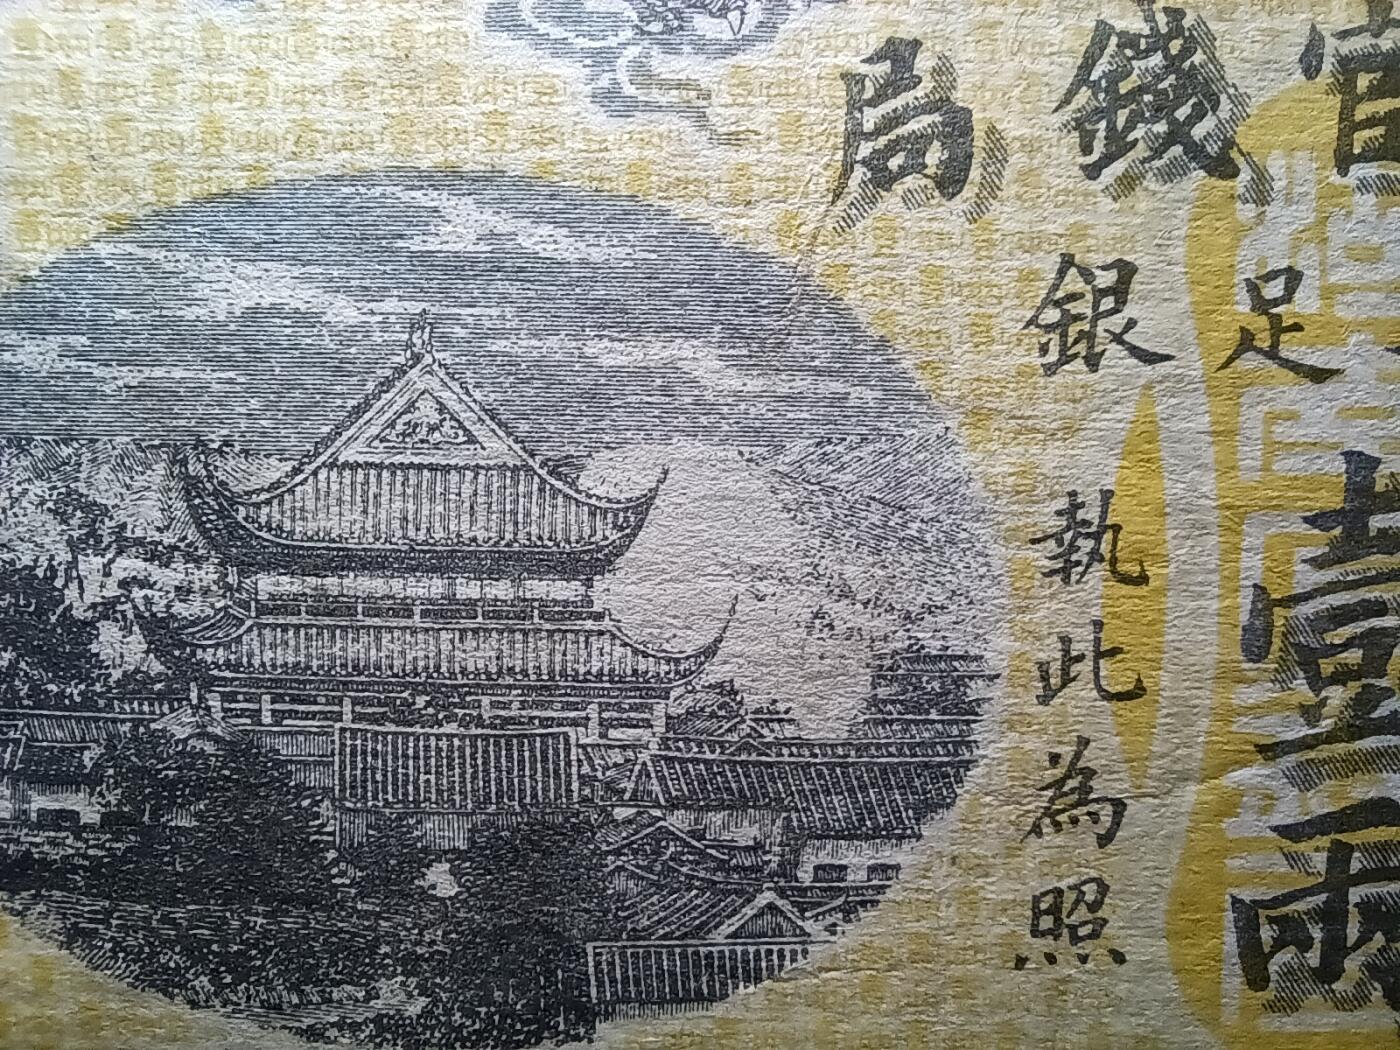 官錢局
足銀
壹兩
執此為照